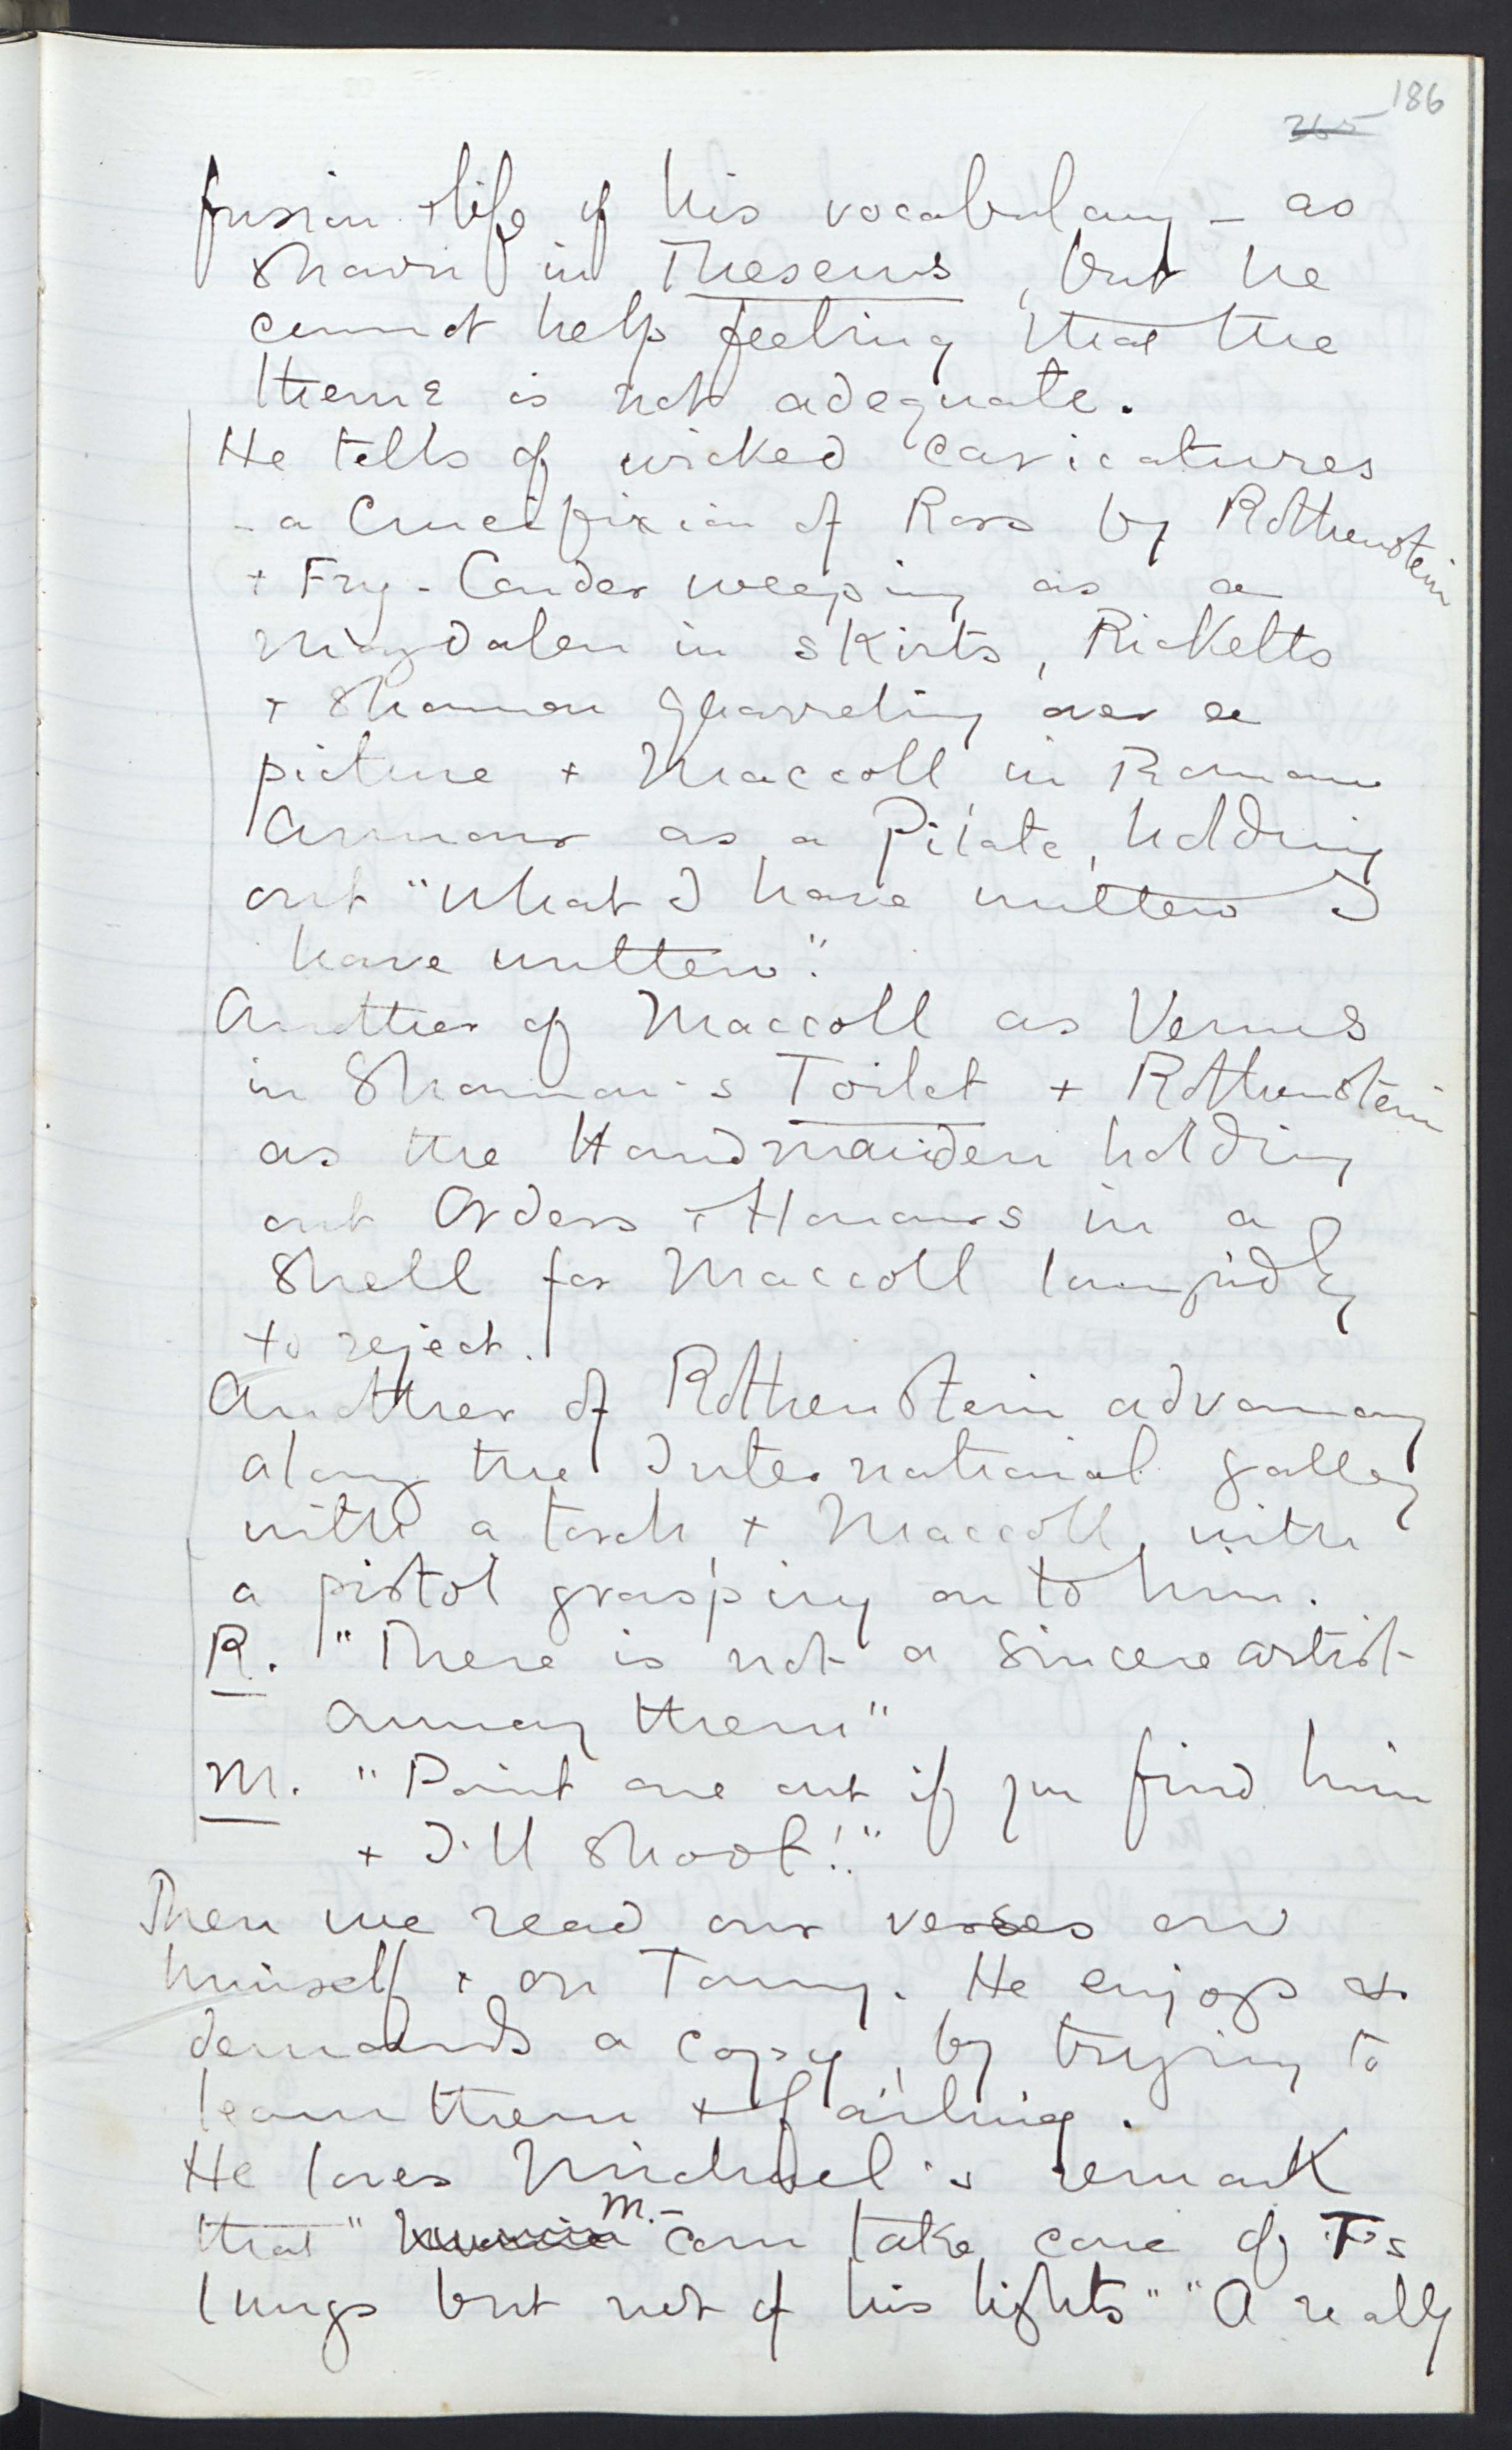 186
365
fusion + life of his vocabulary – as
shown in Theseus, but he
cannot help feeling that the
theme is not adequate.
He tells of wicked caricatures
– a Crucifixion of Ross by Rothenstein
+ Fry – Conder weeping as a
Magdalen in skirts, Ricketts
+ Shannon quarreling over a
picture + Maccoll in Roman
Armour as a Pilate, holding
out "What I have written I
have written".
Another of Maccoll as Venus
in Shannon's Toilet + Rothenstein
as the Handmaiden holding
out Orders + Honours in a
Shell for Maccoll limpidly
to reject.
Another of Rothenstein advancing
along the International gallery
with a torch + Maccoll with
a pistol grasping on to him.
R. "There is not a sincere artist
among them"
M. "Point one out if you find him
+ I'll shoot!"
Then we read our verses on
himself + on Tommy. He enjoys +
demands a copy, by trying to
learn them + failing.
He loves Michael's remark
that " M.– can take care of T's
lungs but not of his lights" "A really